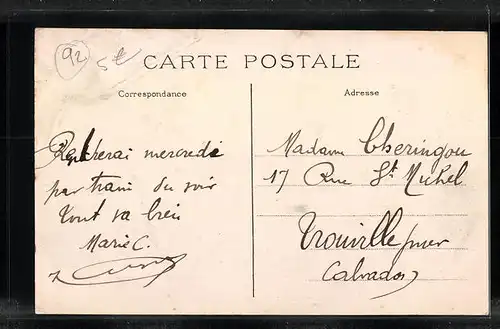 92
5€
CARTE POSTALE
Correspondance
Adresse
Rentrerai mercredi
par train du soir
tout va bien
Marie C.
Madame Cheringou
17 Rue St Michel
Trouville s/mer
Calvados